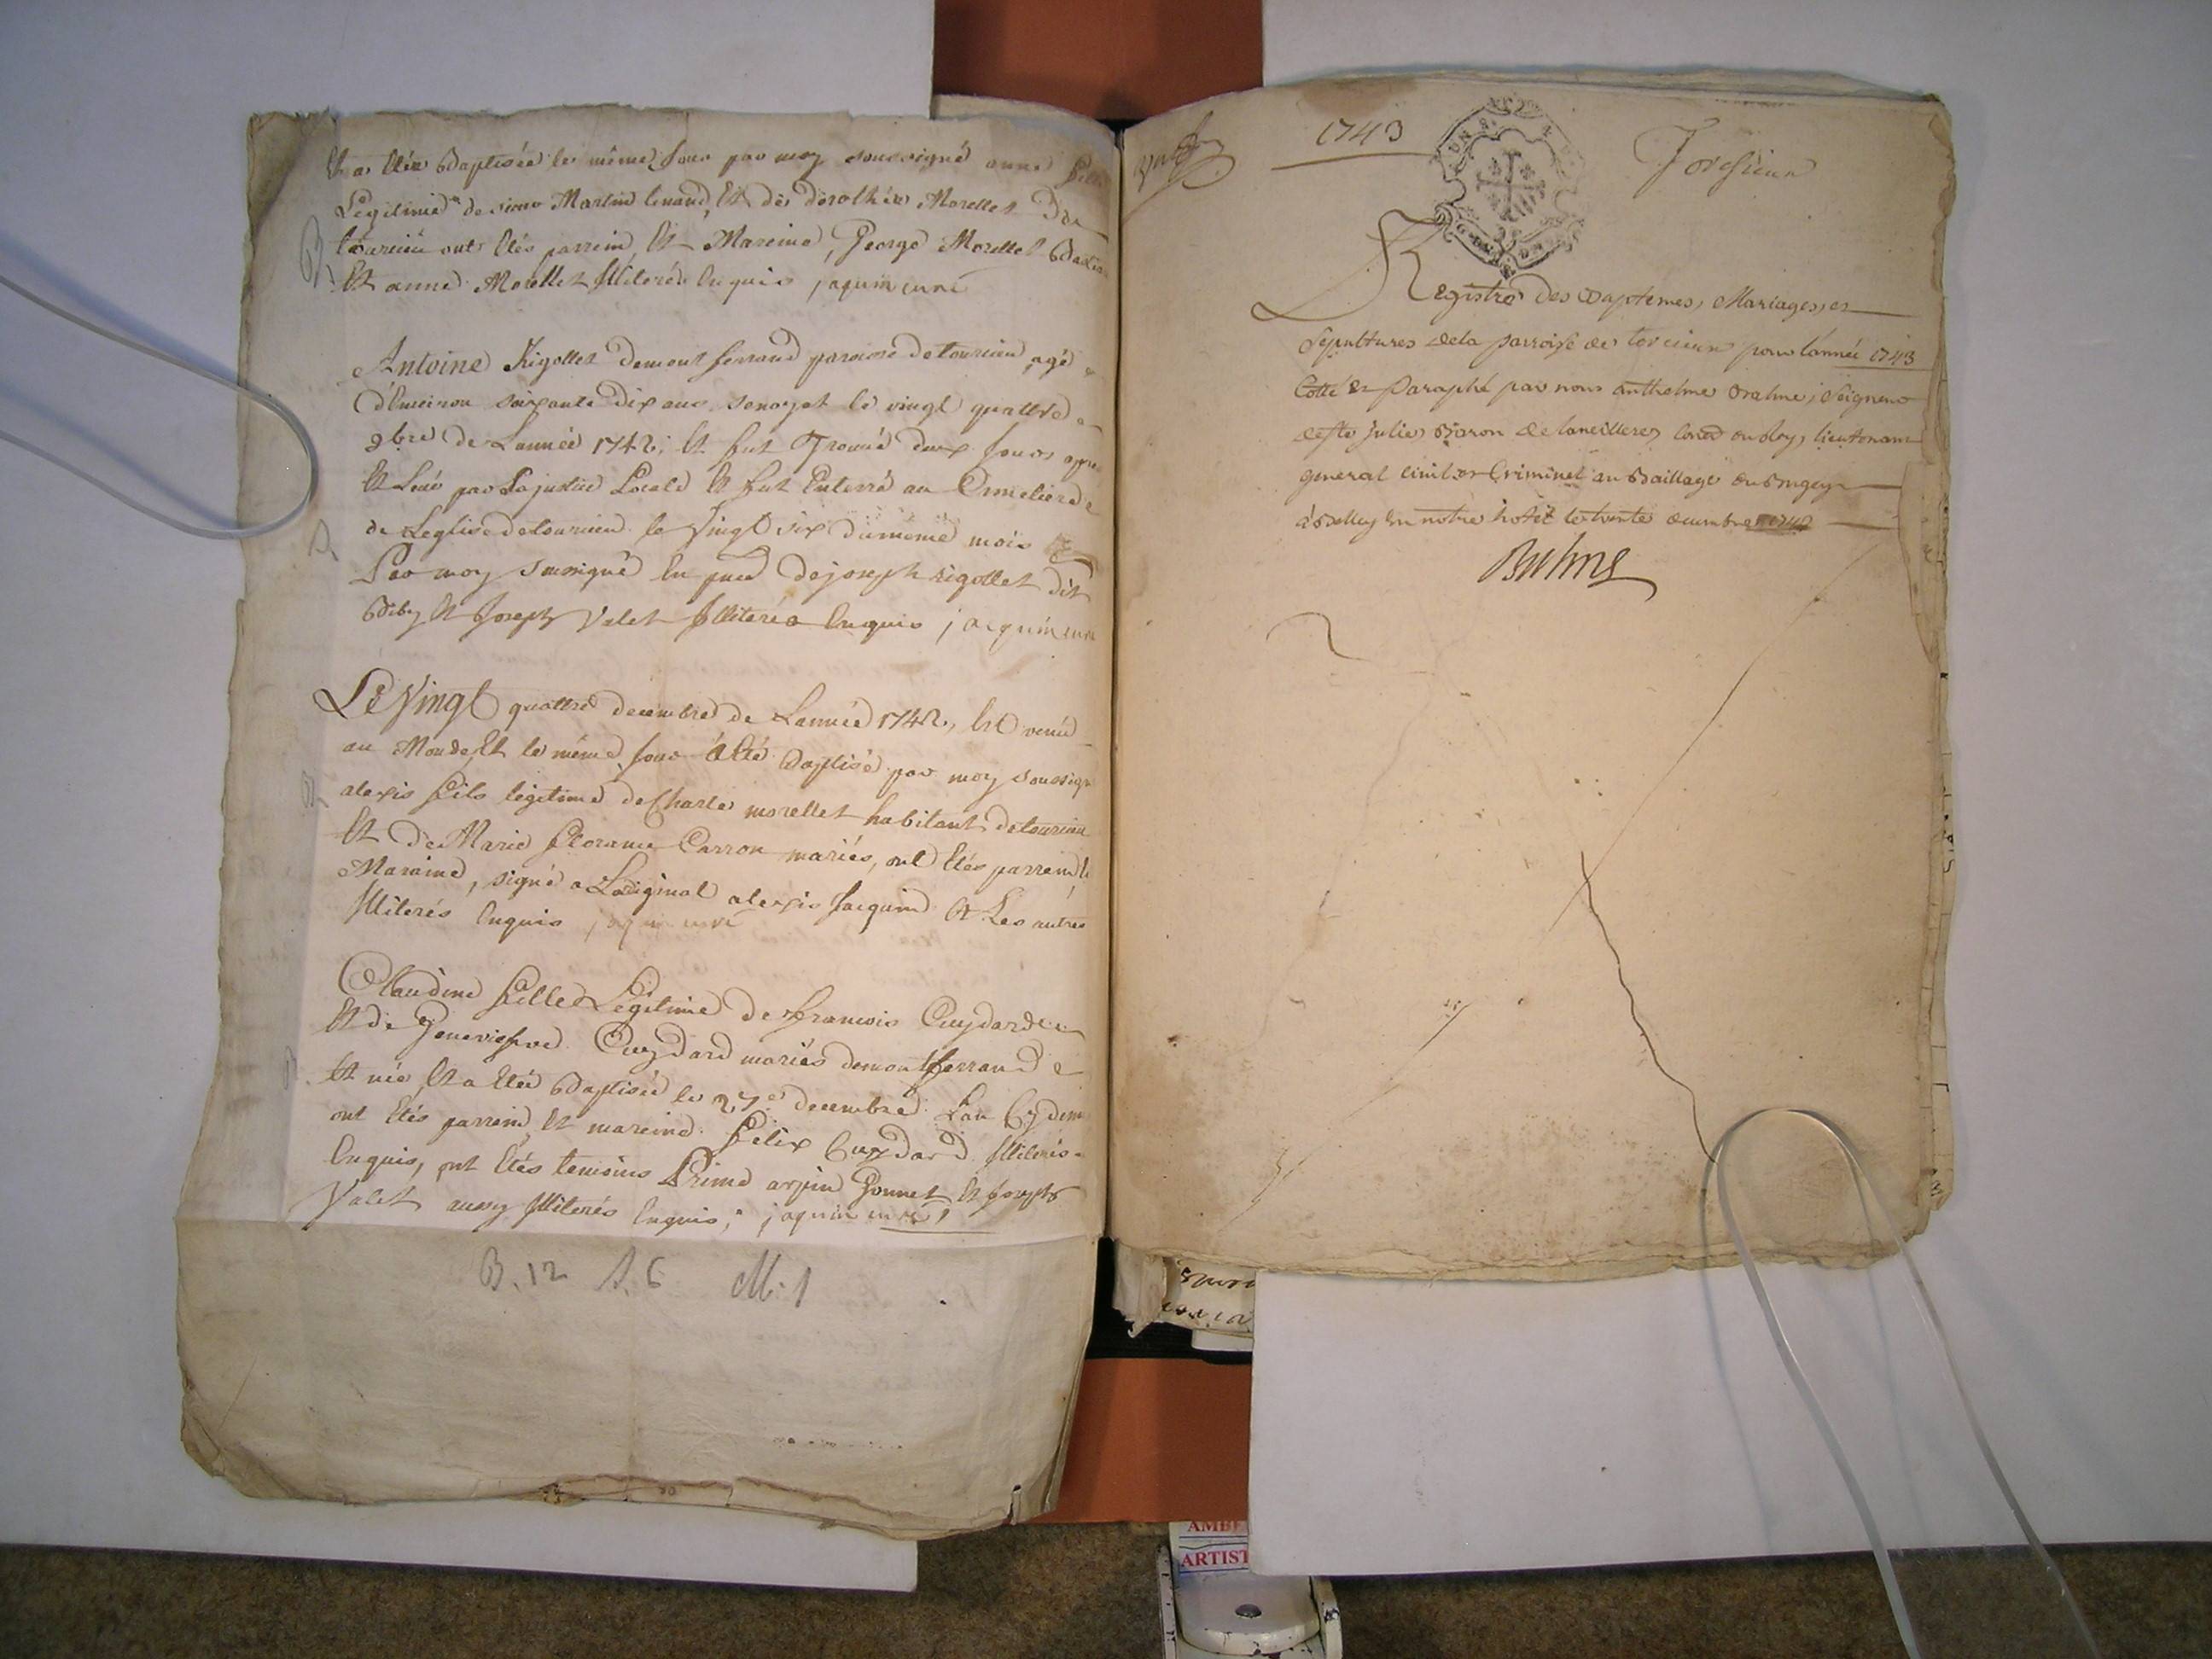 Et a etée Baptisée le même Jour par moy soussigné anne fille
Légitime de sieur Martin tenand, Et de dorothée Morellet De
torcieu ont étés parrein, Et Mareine, George Morellet
Et anne Morellet Illiterés Enquis jaquin curé
Antoine Rigollet demont ferrand paroisse de torcieu, agé
d'Environ soixante dix ans se noyat le vingt quattre
9bre de L'année 1742; Et fut Trouvé deux Jours apres
Et Levé par La justice Locale Et fut Enterré au Cimetiere
de L'eglise de torcieu le Vingt six du même mois
Par moy soussigné En pnce de joseph rigollet dit
Et Joseph Valet Illiterés Enquis jacquin curé
Le Vingt quattre decembre de L'année 1742, Est venu
au Monde Et le même Jour a Eté Baptisé par moy soussigné
alexis fils légitime de Charle morellet habitant de torcieu
Et de Marie Carron mariés, ont Etés parrein Et
Maraine, signé a L'original alexis Jacquin Et Les autres
Illiterés Enquis jaquin curé
Claudine fille Légitime de francois Cuydard
Et de Genevieve Cuydard mariés demontferrand
Et née Et a Etée Baptisée le 27e decembre L'an
ont Etés parrein Et mareine felix Cuydard Illiterés
Enquis, ont Etés temoins Prime arpin Gonnet Et Joseph
Valet aussy Illiterés Enquis; jaquin curé
B. 12 S. 6 M. 1
1743
Torcieu
Registre des Baptemes, Mariages, et
Sepultures de la parroisse de torcieu pour l'année 1743
Cotté et Paraphé par nous anthelme Balme, Seigneur
de ste Julie, Baron de Lon­er du Roy, lieutenant
general civil et Criminel au Baillage du Bugey
a Belley En notre hotel le trente decembre 1742
Balme
AMBE
ARTIST